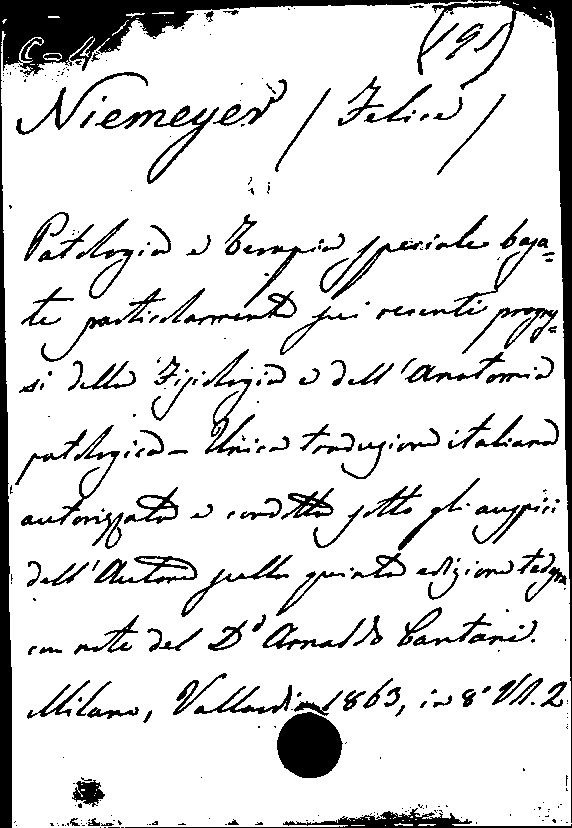 C-4
(191)
Niemeyer / Felice /
Patologia e Terapia speciale basa=
te particolarmente sui recenti progres=
si della Fisiologia e dell'Anatomia
patologica - Unica traduzione italiana
autorizzata e condotta sotto gli auspici
dell'Autore sulla quinta edizione tedesca
con note del Dr Arnaldo Cantani.
Milano, Vallardi 1863, in 8° Vl. 2